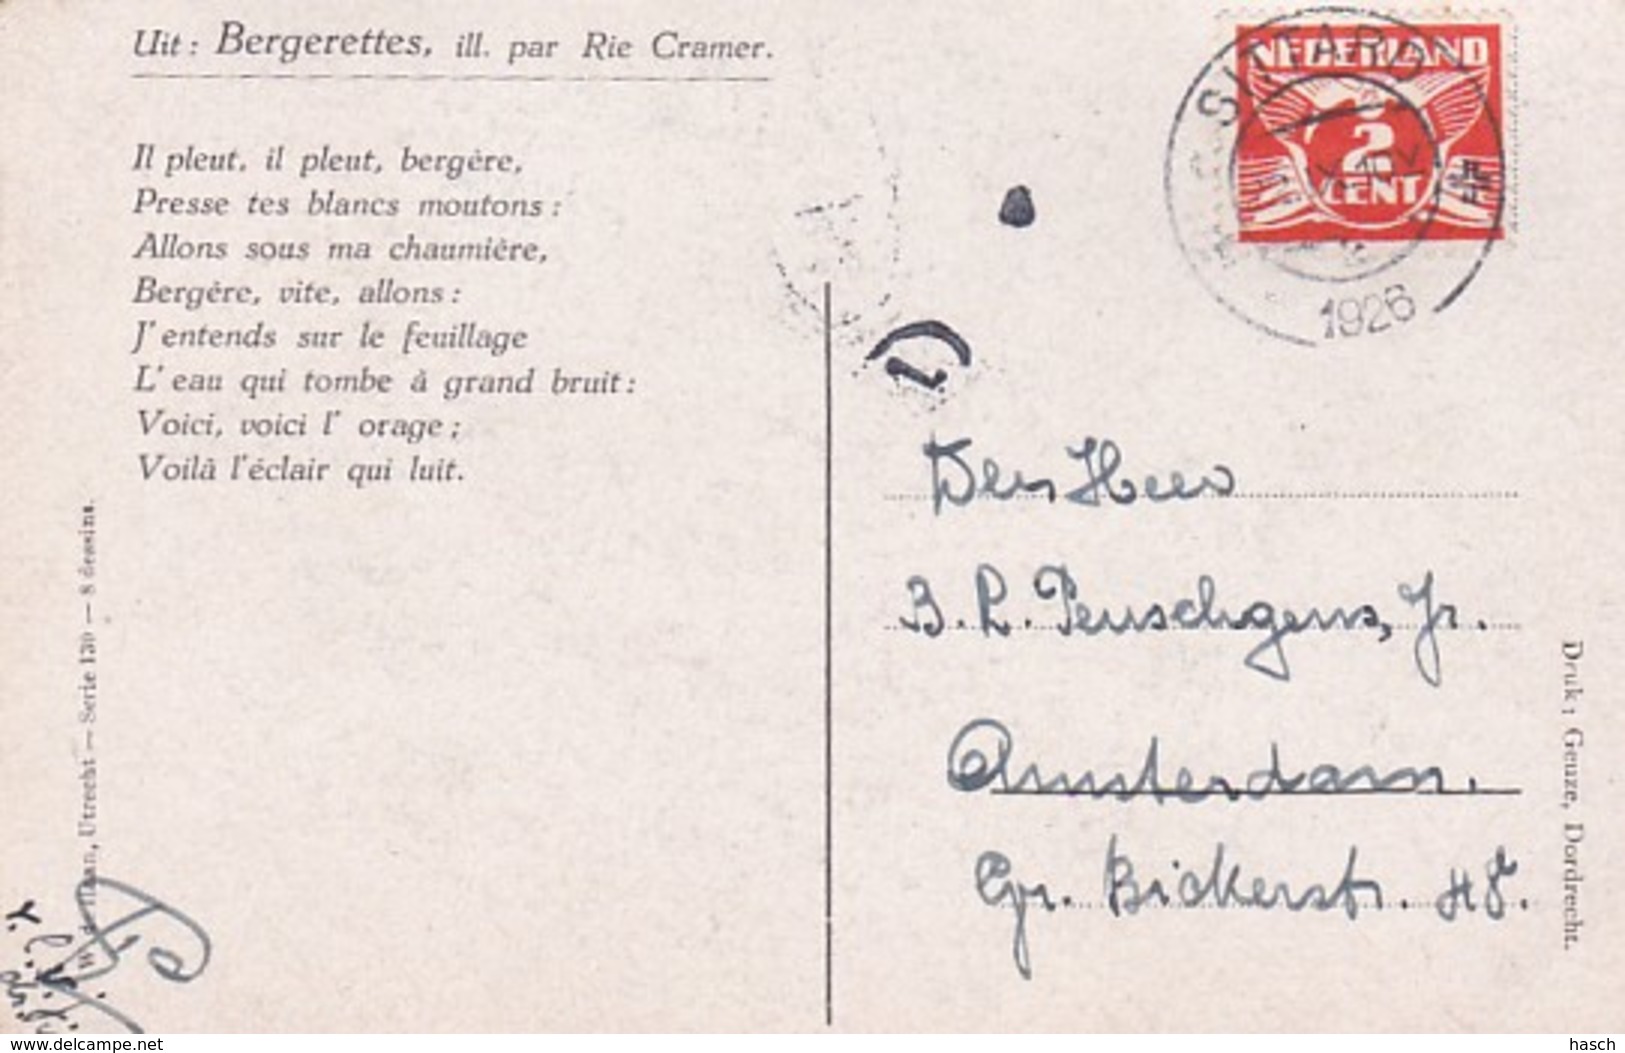 Uit: Bergerettes, ill. par Rie Cramer.
Il pleut, il pleut, bergère,
Presse tes blancs moutons:
Allons sous ma chaumière,
Bergère, vite, allons:
J'entends sur le feuillage
L'eau qui tombe à grand bruit:
Voici, voici l'orage;
Voilà l'éclair qui luit.
Utrecht — Serie 130 — 8 dessins.
NEDERLAND
2
CENT
SITTARD
1926
Den Heer
B. L. Peuschgens, Jr.
Amsterdam.
Gr. Bickerstr.
Druk: Geuze, Dordrecht.
www.delcampe.net
hasch